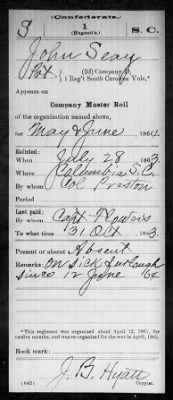 Confederate.
S 1 S.C.
(Hagood's.)
John Seay
Pvt, (2d) Company D,
1 Reg't South Carolina Vols.*
Appears on
Company Muster Roll
of the organization named above,
for May & June, 1864.
Enlisted:
When July 28, 1863.
Where Columbia S.C.
By whom Col Preston
Period
Last paid:
By whom Capt Flowers
To what time 31 Oct, 1863.
Present or absent Absent
Remarks: On sick furlough
since 12 June '64
*This regiment was organized about April 12, 1861, for
twelve months, and was re-organized for the war in 1862.
Book mark:
J. B. Hyatt
(642) Copyist.